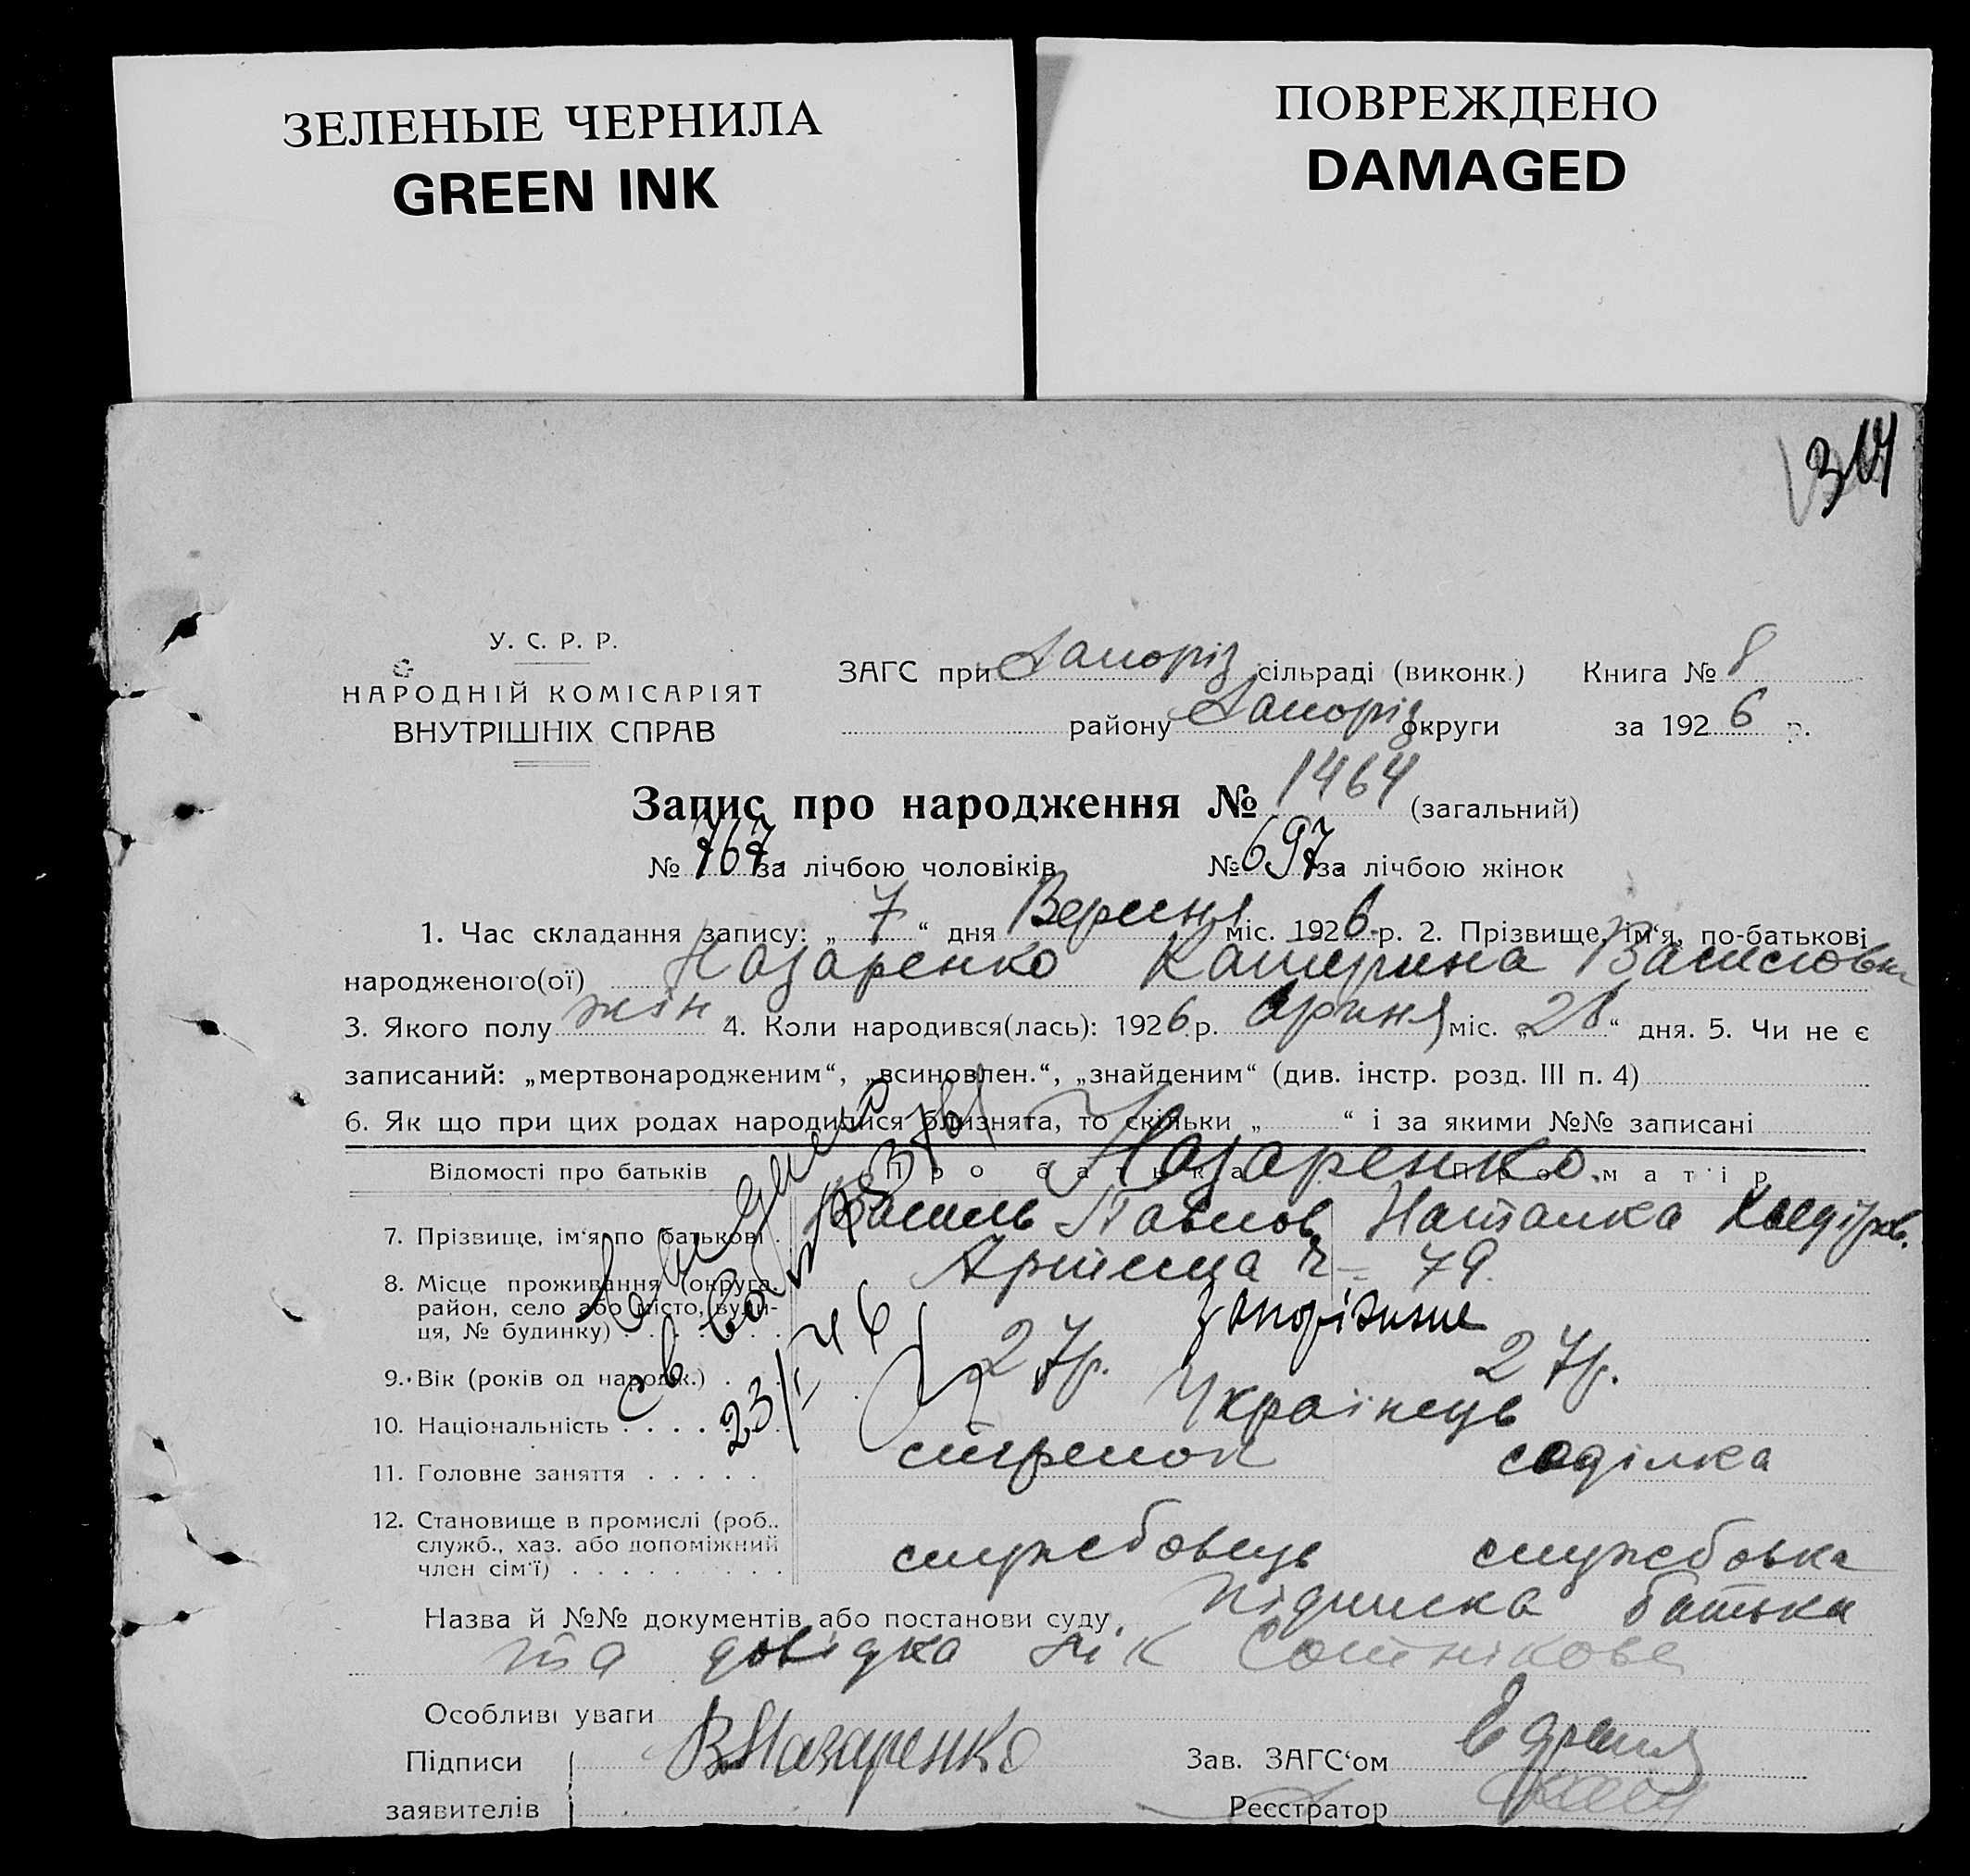 ЗЕЛЕНЫЕ ЧЕРНИЛА
GREEN INK
ПОВРЕЖДЕНО
DAMAGED
314
У. С. Р. Р.
НАРОДНІЙ КОМІСАРІЯТ
ВНУТРІШНІХ СПРАВ
ЗАГС при Запоріз сільраді (виконк.) Книга № 8
району Запоріз округи за 1926 р.
Запис про народження № 1464 (загальний)
№ 767 за лічбою чоловіків № 697 за лічбою жінок
1. Час складання запису: „ 7 “ дня Вересня міс. 1926 р. 2. Прізвище, ім‘я, по-батькові
народженого(ої) Назаренко Катерина Василовна
3. Якого полу жін. 4. Коли народився(лась): 1926 р. міс. „ 28 “ дня. 5. Чи не є
записаний: „мертвонародженим“, „всиновлен.“, „знайденим“ (див. інстр. розд. III п. 4)
6. Як що при цих родах народилися близнята, то скільки „ “ і за якими №№ записані
Відомості про батьків Про батька Про матір
Назаренко
7. Прізвище, ім‘я по батькові . Василь Павлов. Наталка
8. Місце проживання (округа, район, село або місто, вули-
ця, № будинку) . . . . 79.
Запоріжжє
9. Вік (років од народж.) . . 27р. 27р.
10. Національність . . . . . . Українець
11. Головне заняття . . . . .
12. Становище в промислі (роб.,
служб., хаз. або допоміжний
член сім‘ї) . . . . . . . . . службовець службовка
23/I 46
Назва й №№ документів або постанови суду. Підписка батька
та довідка лік Сотнікова
Особливі уваги
Підписи ВНазаренко Зав. ЗАГС‘ом
заявителів Реєстратор